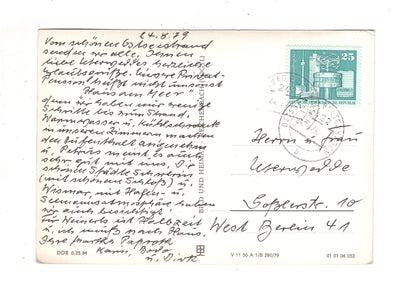 24.8.79
Vom schönen Ostseestrand
senden wir alle, Ihnen
liebe Uterweddes herzliche
Urlaubsgrüße. Unsere Privat-
Pension heißt nicht umsonst
"Haus am Meer"
denn wir haben nur wenige
Schritte bis zum Strand.
Warmwasser u. Kühlschrank
in unseren Zimmern machen
den Aufenthalt angenehm
u. Petrus meint es auch
sehr gut mit uns. Die
schönen Städte Schwerin
(mit schönem Schloß) u.
Wismar mit Hafen- u.
Seemannsatmosphäre haben
wir auch besichtigt.
für Weinerts ist Halbzeit
u. ich muß nach Haus.
Ihre Martha
Karin, Bodo
u. Dirk
BILD UND HEIMAT REICHENBACH
25
DEUTSCHE DEMOKRATISCHE REPUBLIK
Herrn und Frau
Uterwedde
Goßlerstr. 10
West Berlin 41
DDR 0,25 M
V 11 50 A 1/B 280/79
01 01 04 052